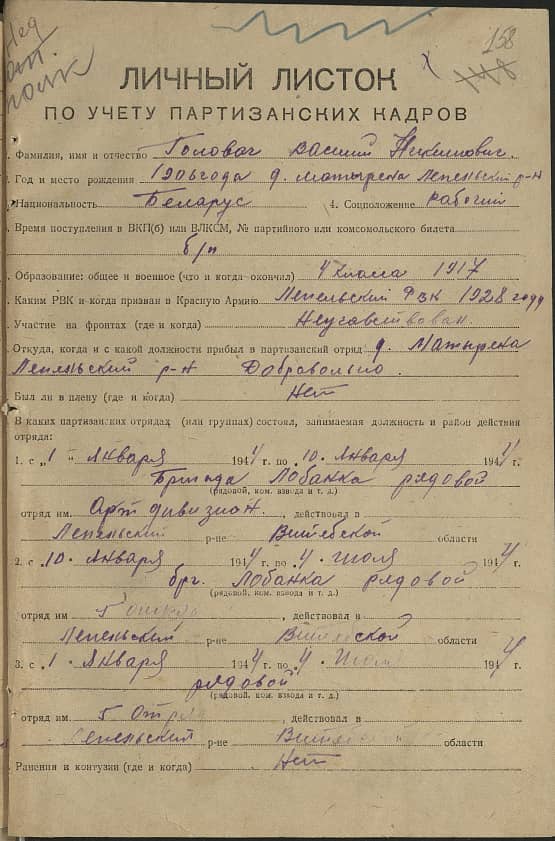 158
148
ЛИЧНЫЙ ЛИСТОК
ПО УЧЕТУ ПАРТИЗАНСКИХ КАДРОВ
. Фамилия, имя и отчество Головач Василий Никитович.
. Год и место рождения 1906 года д. Матырена Лепельский р-н
. Национальность Беларус 4. Соцположение рабочий
. Время поступления в ВКП(б) или ВЛКСМ, № партийного или комсомольского билета
б/п
. Образование: общее и военное (что и когда окончил) 4 класса 1917
. Каким РВК и когда призван в Красную Армию Лепельский РВК 1928 году
. Участие на фронтах (где и когда) Неучавствовал.
. Откуда, когда и с какой должности прибыл в партизанский отряд д. Матырена
Лепельский р-н Добравольно.
. Был ли в плену (где и когда) Нет
. В каких партизанских отрядах (или группах) состоял, занимаемая должность и район действия
отряда:
1. с „1 " Января 1944 г. по 10. Января 1944 г.
Бригада Лобанка рядовой
(рядовой, ком. взвода и т. д.)
отряд им. Арт дивизион , действовал в
Лепельский р-не Витебской области
2. с 10. Января 1944 г. по 4. Июля 1944 г.
бриг. Лобанка рядовой
(рядовой, ком. взвода и т. д.)
отряд им 5 , действовал в
Лепельский р-не Витебской области
3. с 1. Января 1944 г. по 4. Июля 1944 г.
рядовой
(рядовой, ком. взвода и т. д.)
отряд им. 5 Отряд , действовал в
Лепельский р-не области
. Ранения и контузии (где и когда) Нет